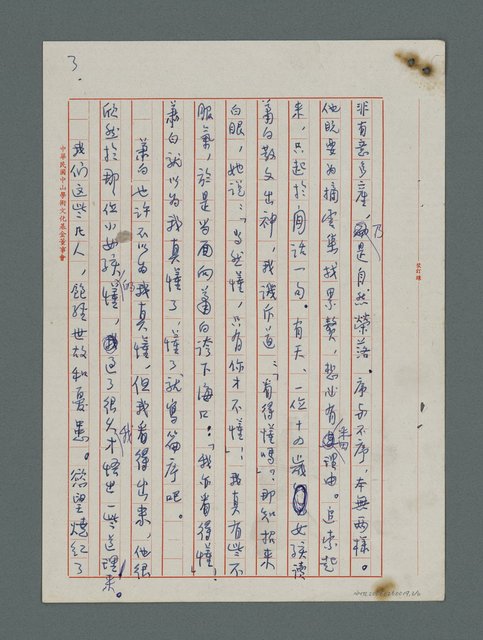 3.
非有意多產，乃是自然榮落。序而不序，本無兩樣。
他既要為摘雲集找累贅，想必有其來由。追索起
來，只起於閒話一句。有天，一位十九歲女孩讀
蕭白散文出神，我譏斥道：「看得懂嗎？」那知招來
白眼，她說：「當然懂，只有你才不懂！」我真有些不
服氣，於是當面向蕭白誇下海口：「我亦看得懂！」
蕭白就以為我真懂了，懂了就寫篇序吧。
蕭白也許不以為我真懂，但我看得出來，他很
欣然於那位小女孩的懂，過了很久我才悟出一些道理來。
我們這些凡人，飽經世故和憂患。慾望燒紅了
中華民國中山學術文化基金董事會
裝訂線